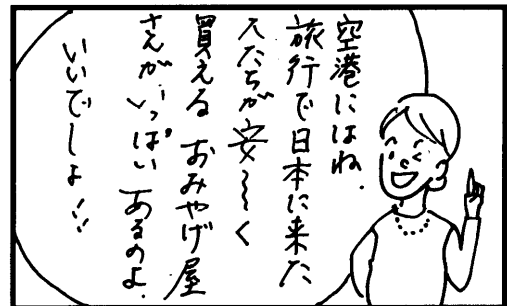 空港にはね、
旅行で日本に来た
人たちが安～～く
買える おみやげ屋
さんが、いっぱい あるのよ。
いいでしょ!!